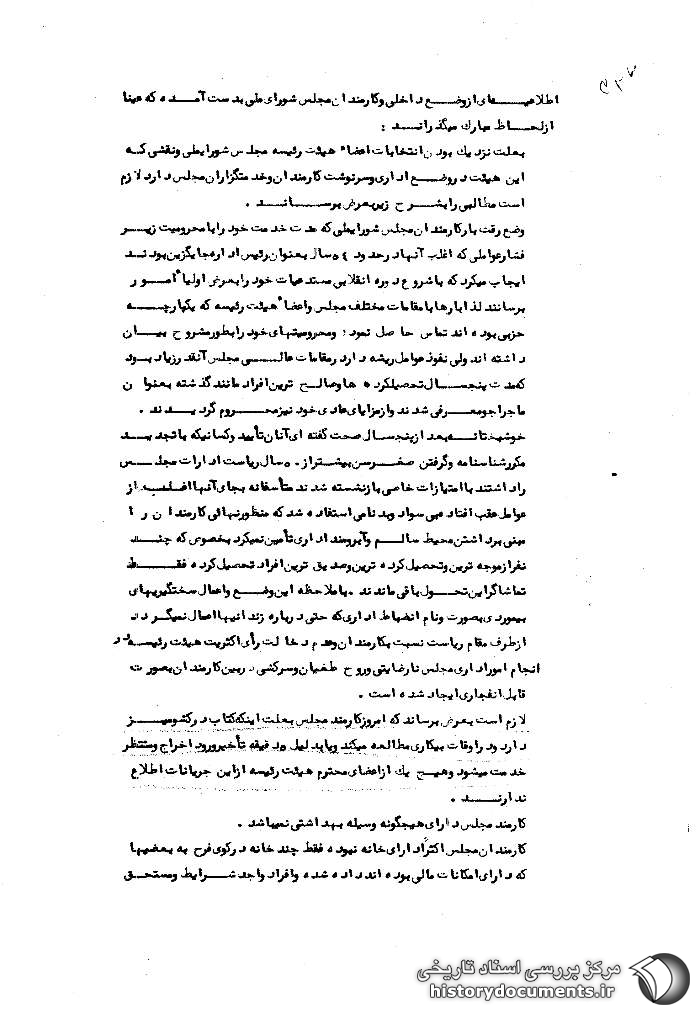 اطلاعیه‌های از وضع داخلی و کارمندان مجلس شورای ملی بدست آمده که عینا
از لحاظ مبارک میگذراند :
بعلت نزدیک بودن انتخابات اعضاء هیئت رئیسه مجلس شورایملی و نقشی که
این هیئت در وضع اداری و سرنوشت کارمندان و خدمتگزاران مجلس دارد لازم
است مطالبی را بشرح زیر بعرض برساند .
وضع رقت بار کارمندان مجلس شورایملی که مدت خدمت خود را با محرومیت زیر
فشار عواملی که اغلب آنها در حدود ۵۴ سال بعنوان رئیس اداره جایگزین بودند
ایجاب میکرد که با شروع دوره انقلابی مستدعیات خود را بعرض اولیاء امور
برسانند لذا بارها با مقامات مختلف مجلس و اعضاء هیئت رئیسه که یکپارچه
حزبی بوده اند تماس حاصل نمود؛ و محرومیتهای خود را بطور مشروح بیان
داشته اند ولی نفوذ عوامل ریشه دار در مقامات عالی مجلس آنقدر زیاد بود
که مدت پنجسال تحصیلکرده ها و صالح ترین افراد مانند گذشته بعنوان
ماجراجو معرفی شدند و از مزایای عادی خود نیز محروم گردیدند .
خوشبختانه بعد از پنجسال صحت گفته ای آنان تأیید و کسانیکه با تجدید
مکرر شناسنامه و گرفتن صغر سن بیشتر از ۵۰ سال ریاست ادارات مجلس
را داشتند با امتیازات خاصی بازنشسته شدند متأسفانه بجای آنها اغلب از
عوامل عقب افتاده بی سواد و بدنامی استفاده شد که منظور نهائی کارمندان را
مبنی برداشتن محیط سالم و آبرومند اداری تأمین نمیکرد بخصوص که چند
نفر از موجه ترین و تحصیل کرده ترین و صدیق ترین افراد تحصیل کرده فقط
تماشاگر این تحول باقی ماندند . با ملاحظه این وضع و اعمال سختگیریهای
بیموردی بصورت و نام انضباط اداری که حتی درباره زندانیها اعمال نمیگردد
از طرف مقام ریاست نسبت بکارمندان و عدم دخالت رأی اکثریت هیئت رئیسه در
انجام امور اداری مجلس نارضایتی و روح طغیان و سرکشی در بین کارمندان بصورت
قابل انفجاری ایجاد شده است .
لازم است بعرض برساند که امروز کارمند مجلس بعلت اینکه کتاب در کشو میز
دارد و در اوقات بیکاری مطالعه میکند و یا بدلیل ۵ دقیقه تأخیر ورود اخراج و منتظر
خدمت میشود و هیچ یک از اعضای محترم هیئت رئیسه از این جریانات اطلاع
ندارند .
کارمند مجلس دارای هیچگونه وسیله بهداشتی نمیباشد .
کارمندان مجلس اکثراً دارای خانه نبوده فقط چند خانه در کوی فرح به بعضیها
که دارای امکانات مالی بوده اند داده شده و افراد واجد شرایط و مستحق
مرکز بررسی اسناد تاریخی
historydocuments.ir